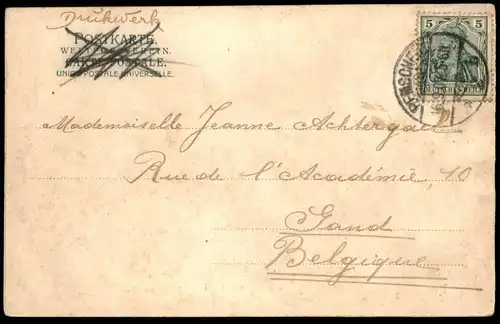 Drukwerk
POSTKARTE.
WELTPOSTVEREIN.
CARTE POSTALE.
UNION POSTALE UNIVERSELLE.
5 5
DEUTSCHES REICH
Mademoiselle Jeanne
Rue de l'Académie, 10
Gand
Belgique